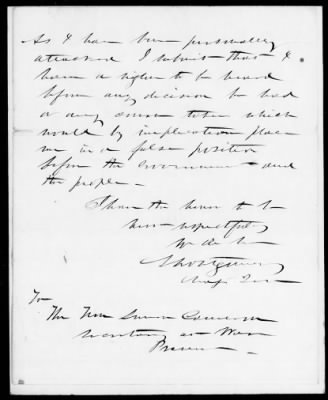 As I have been personally
attacked I submit that I
have a right to be heard
before any decision be had
or any action taken which
would by implication place
me in a false position
before the Government and
the people —
I have the honor to be
very respectfully
Montgomery
To
The Hon Simon Cameron
Secretary of War
Present